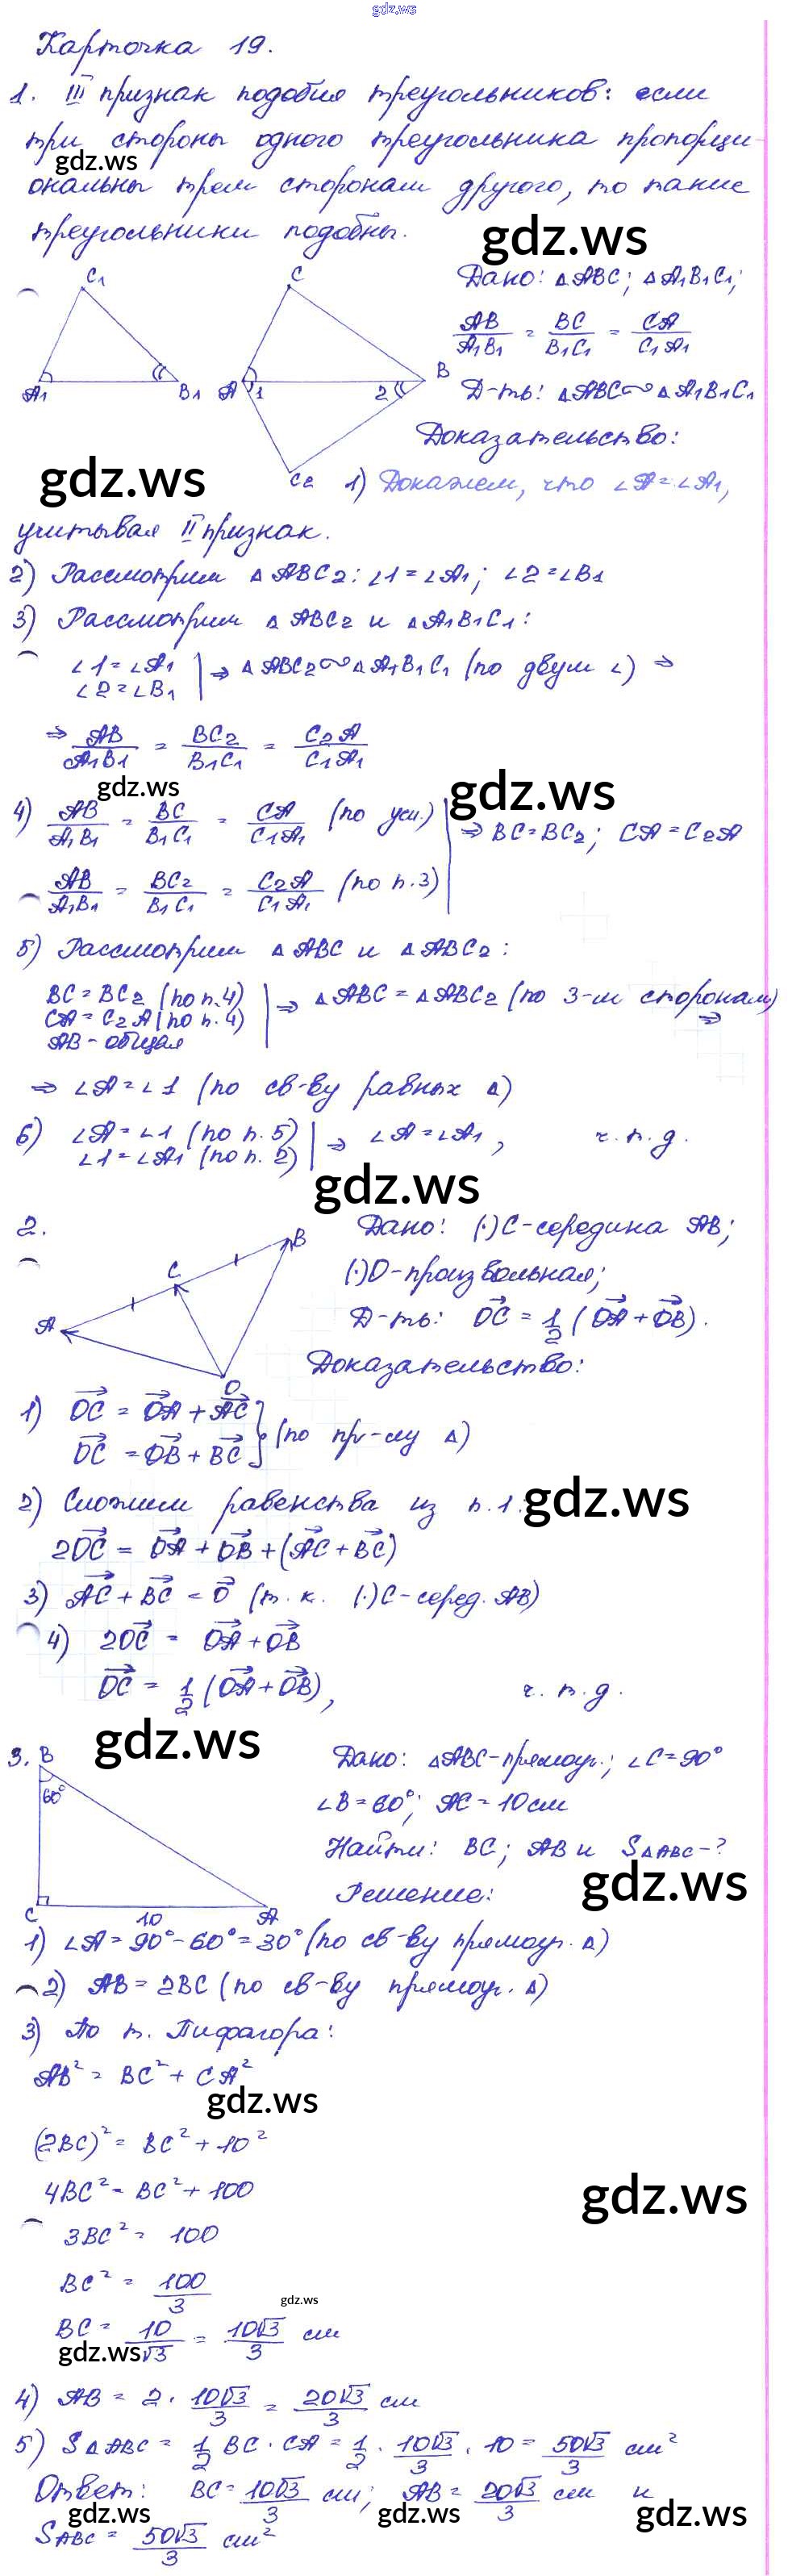 gdz.ws
Карточка 19.
1. III признак подобия треугольников: если
три стороны одного треугольника пропорци-
gdz.ws
ональны трем сторонам другого, то такие
треугольники подобны.
gdz.ws
C₁
A₁ B₁
C
A 1 2 B
C₂
Дано: △ABC; △A₁B₁C₁;
AB/A₁B₁ = BC/B₁C₁ = CA/C₁A₁
Д-ть: △ABC∾△A₁B₁C₁
Доказательство:
gdz.ws
1) Докажем, что ∠A=∠A₁,
учитывая II признак.
2) Рассмотрим △ABC₂: ∠1=∠A₁; ∠2=∠B₁
3) Рассмотрим △ABC₂ и △A₁B₁C₁:
∠1=∠A₁
∠2=∠B₁ | ⇒ △ABC₂∾△A₁B₁C₁ (по двум ∠) ⇒
⇒ AB/A₁B₁ = BC₂/B₁C₁ = C₂A/C₁A₁
gdz.ws
gdz.ws
4) AB/A₁B₁ = BC/B₁C₁ = CA/C₁A₁ (по усл.) | ⇒ BC=BC₂; CA=C₂A
AB/A₁B₁ = BC₂/B₁C₁ = C₂A/C₁A₁ (по п.3)
5) Рассмотрим △ABC и △ABC₂:
BC=BC₂ (по п.4)
CA=C₂A (по п.4) | ⇒ △ABC=△ABC₂ (по 3-м сторонам) ⇒
AB-общая
⇒ ∠A=∠1 (по св-ву равных △)
6) ∠A=∠1 (по п.5)
∠1=∠A₁ (по п.2) | ⇒ ∠A=∠A₁, ч.т.д.
gdz.ws
2.
A C B
O
Дано: (·)C-середина AB;
(·)O-произвольная;
Д-ть: OC⃗ = 1/2 (OA⃗+OB⃗).
Доказательство:
1) OC⃗ = OA⃗ + AC⃗
OC⃗ = OB⃗ + BC⃗ } (по пр-лу △)
2) Сложим равенства из п.1:
gdz.ws
2OC⃗ = OA⃗ + OB⃗ + (AC⃗ + BC⃗)
3) AC⃗ + BC⃗ = 0⃗ (т.к. (·)C-серед. AB)
4) 2OC⃗ = OA⃗+OB⃗
OC⃗ = 1/2 (OA⃗+OB⃗), ч.т.д.
gdz.ws
3. B
60°
C 10 A
Дано: △ABC-прямоуг.; ∠C=90°
∠B=60°; AC=10см
Найти: BC; AB и S△ABC-?
gdz.ws
Решение:
1) ∠A=90°-60°=30° (по св-ву прямоуг. △)
2) AB=2BC (по св-ву прямоуг. △)
3) По т. Пифагора:
AB² = BC² + CA²
gdz.ws
(2BC)² = BC² + 10²
4BC² = BC² + 100
gdz.ws
3BC² = 100
BC² = 100/3
gdz.ws
BC = 10/√3 = 10√3/3 см
gdz.ws
4) AB = 2 · 10√3/3 = 20√3/3 см
5) S△ABC = 1/2 BC · CA = 1/2 · 10√3/3 · 10 = 50√3/3 см²
Ответ: BC=10√3/3 см; AB=20√3/3 см и
gdz.ws gdz.ws gdz.ws
SABC = 50√3/3 см²